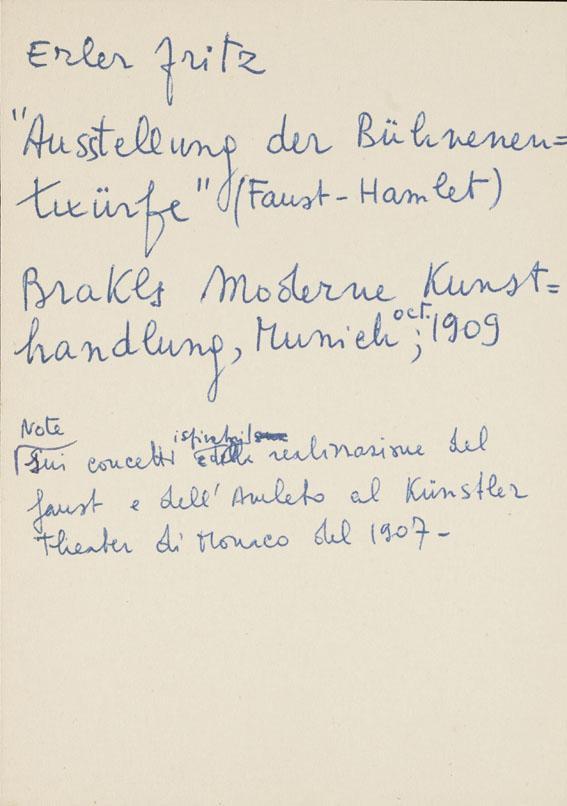 Erler Fritz
"Ausstellung der Bühnenen=
twürfe" (Faust-Hamlet)
Brakls Moderne Kunst=
handlung, Munich oct.; 1909
Note
sui concetti realizzazione del
faust e dell'Amleto al Künstler
Theater di Monaco del 1907-